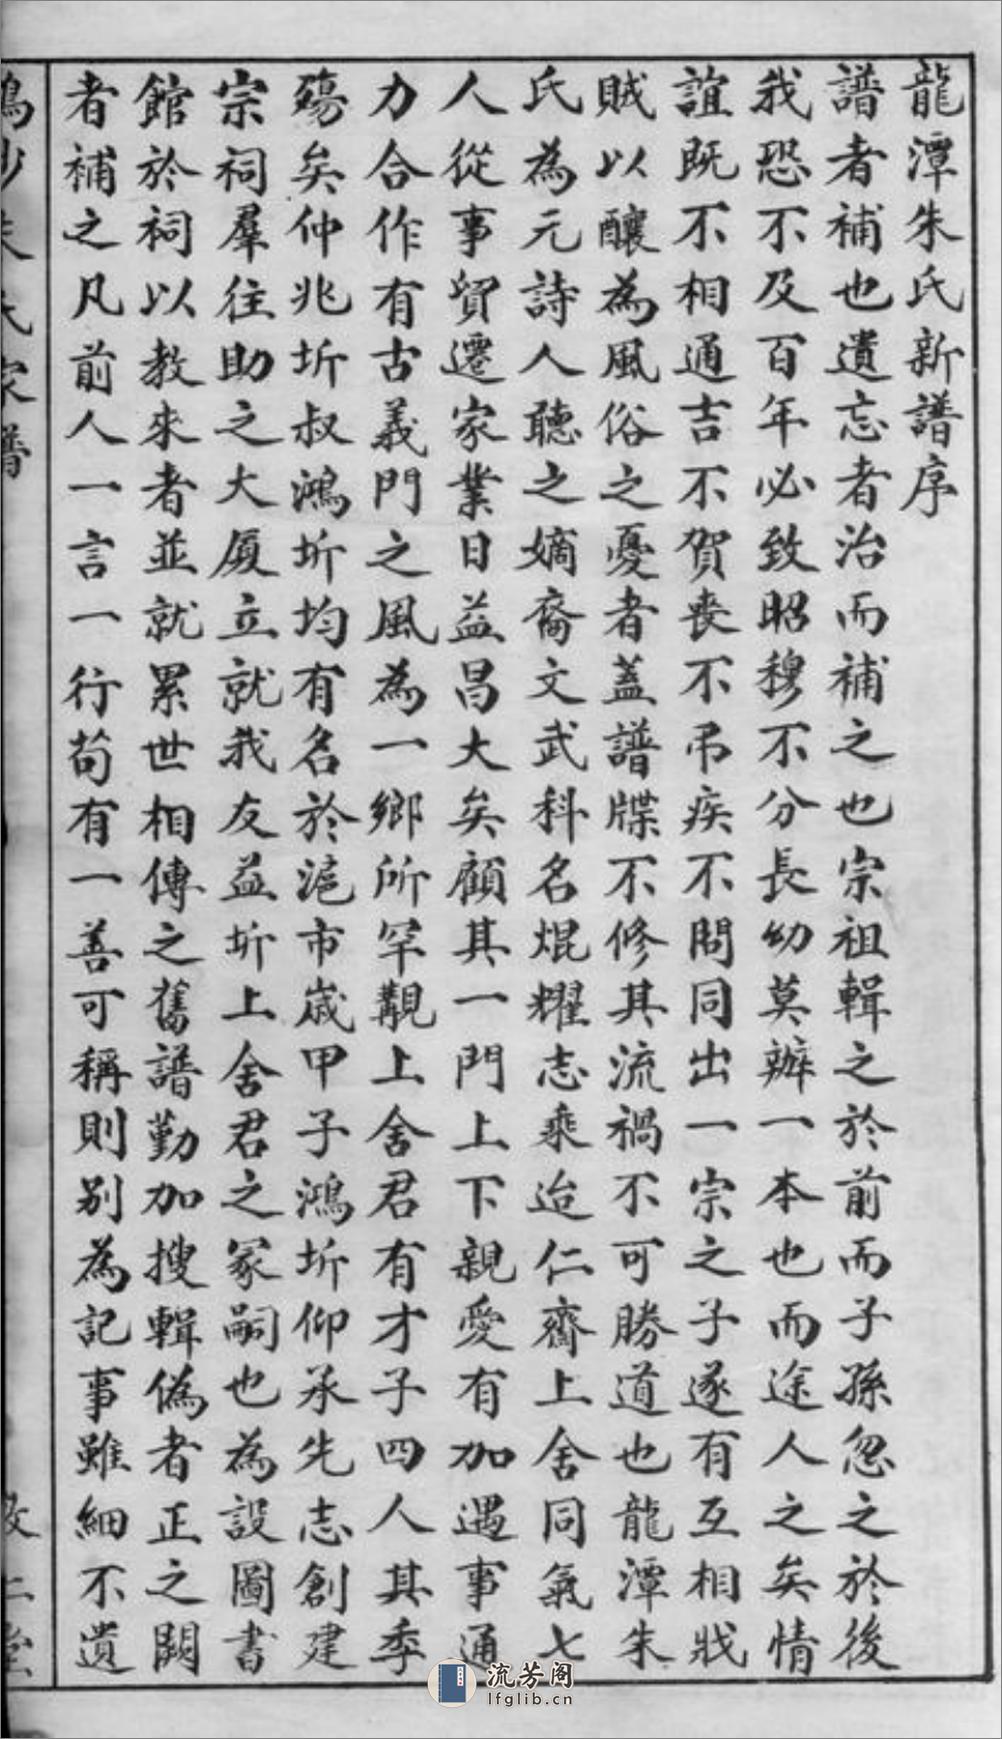 龍潭朱氏新譜序
譜者補也遺忘者治而補之也宗祖輯之於前而子孫忽之於後
我恐不及百年必致昭穆不分長幼莫辦一本也而途人之矣情
誼既不相通吉不賀喪不弔疾不問同出一宗之子遂有互相戕
賊以釀為風俗之憂者蓋譜牒不修其流禍不可勝道也龍潭朱
氏為元詩人聽之嫡裔文武科名焜耀志乘迨仁齋上舍同氣七
人從事貿遷家業日益昌大矣顧其一門上下親愛有加遇事通
力合作有古義門之風為一鄉所罕覯上舍君有才子四人其季
殤矣仲兆圻叔鴻圻均有名於滬市歲甲子鴻圻仰承先志創建
宗祠羣往助之大廈立就我友益圻上舍君之冢嗣也為設圖書
館於祠以教來者並就累世相傳之舊譜勤加搜輯偽者正之闕
者補之凡前人一言一行茍有一善可稱則别為記事雖細不遺
朱氏家譜
流芳阁
lfglib.cn